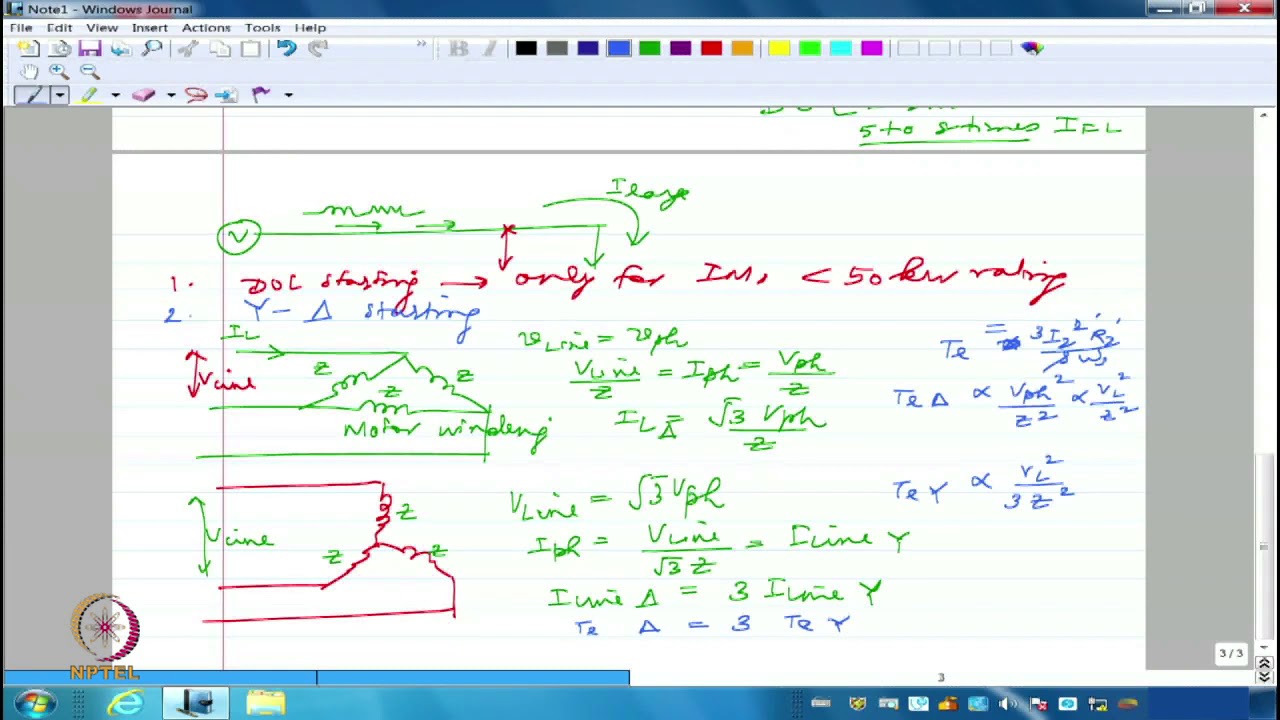 Note1 - Windows Journal
File Edit View Insert Actions Tools Help
5 to 8 times IFL
I large
V
1. DOL starting → only for IMs < 50 kW rating
2. Y - Δ starting
IL
Vline
Z
Z
Z
Motor winding
VLine = Vph
VLine/Z = Iph = Vph/Z
ILΔ = √3 Vph/Z
Te = 3 I2'² R2'/s ωs
Te Δ ∝ Vph²/Z² ∝ VL²/Z²
Te Y ∝ VL²/3Z²
Vline
Z
Z
Z
VLine = √3 Vph
Iph = VLine/√3 Z = ILine Y
ILine Δ = 3 ILine Y
Te Δ = 3 Te Y
NPTEL
3 / 3
3